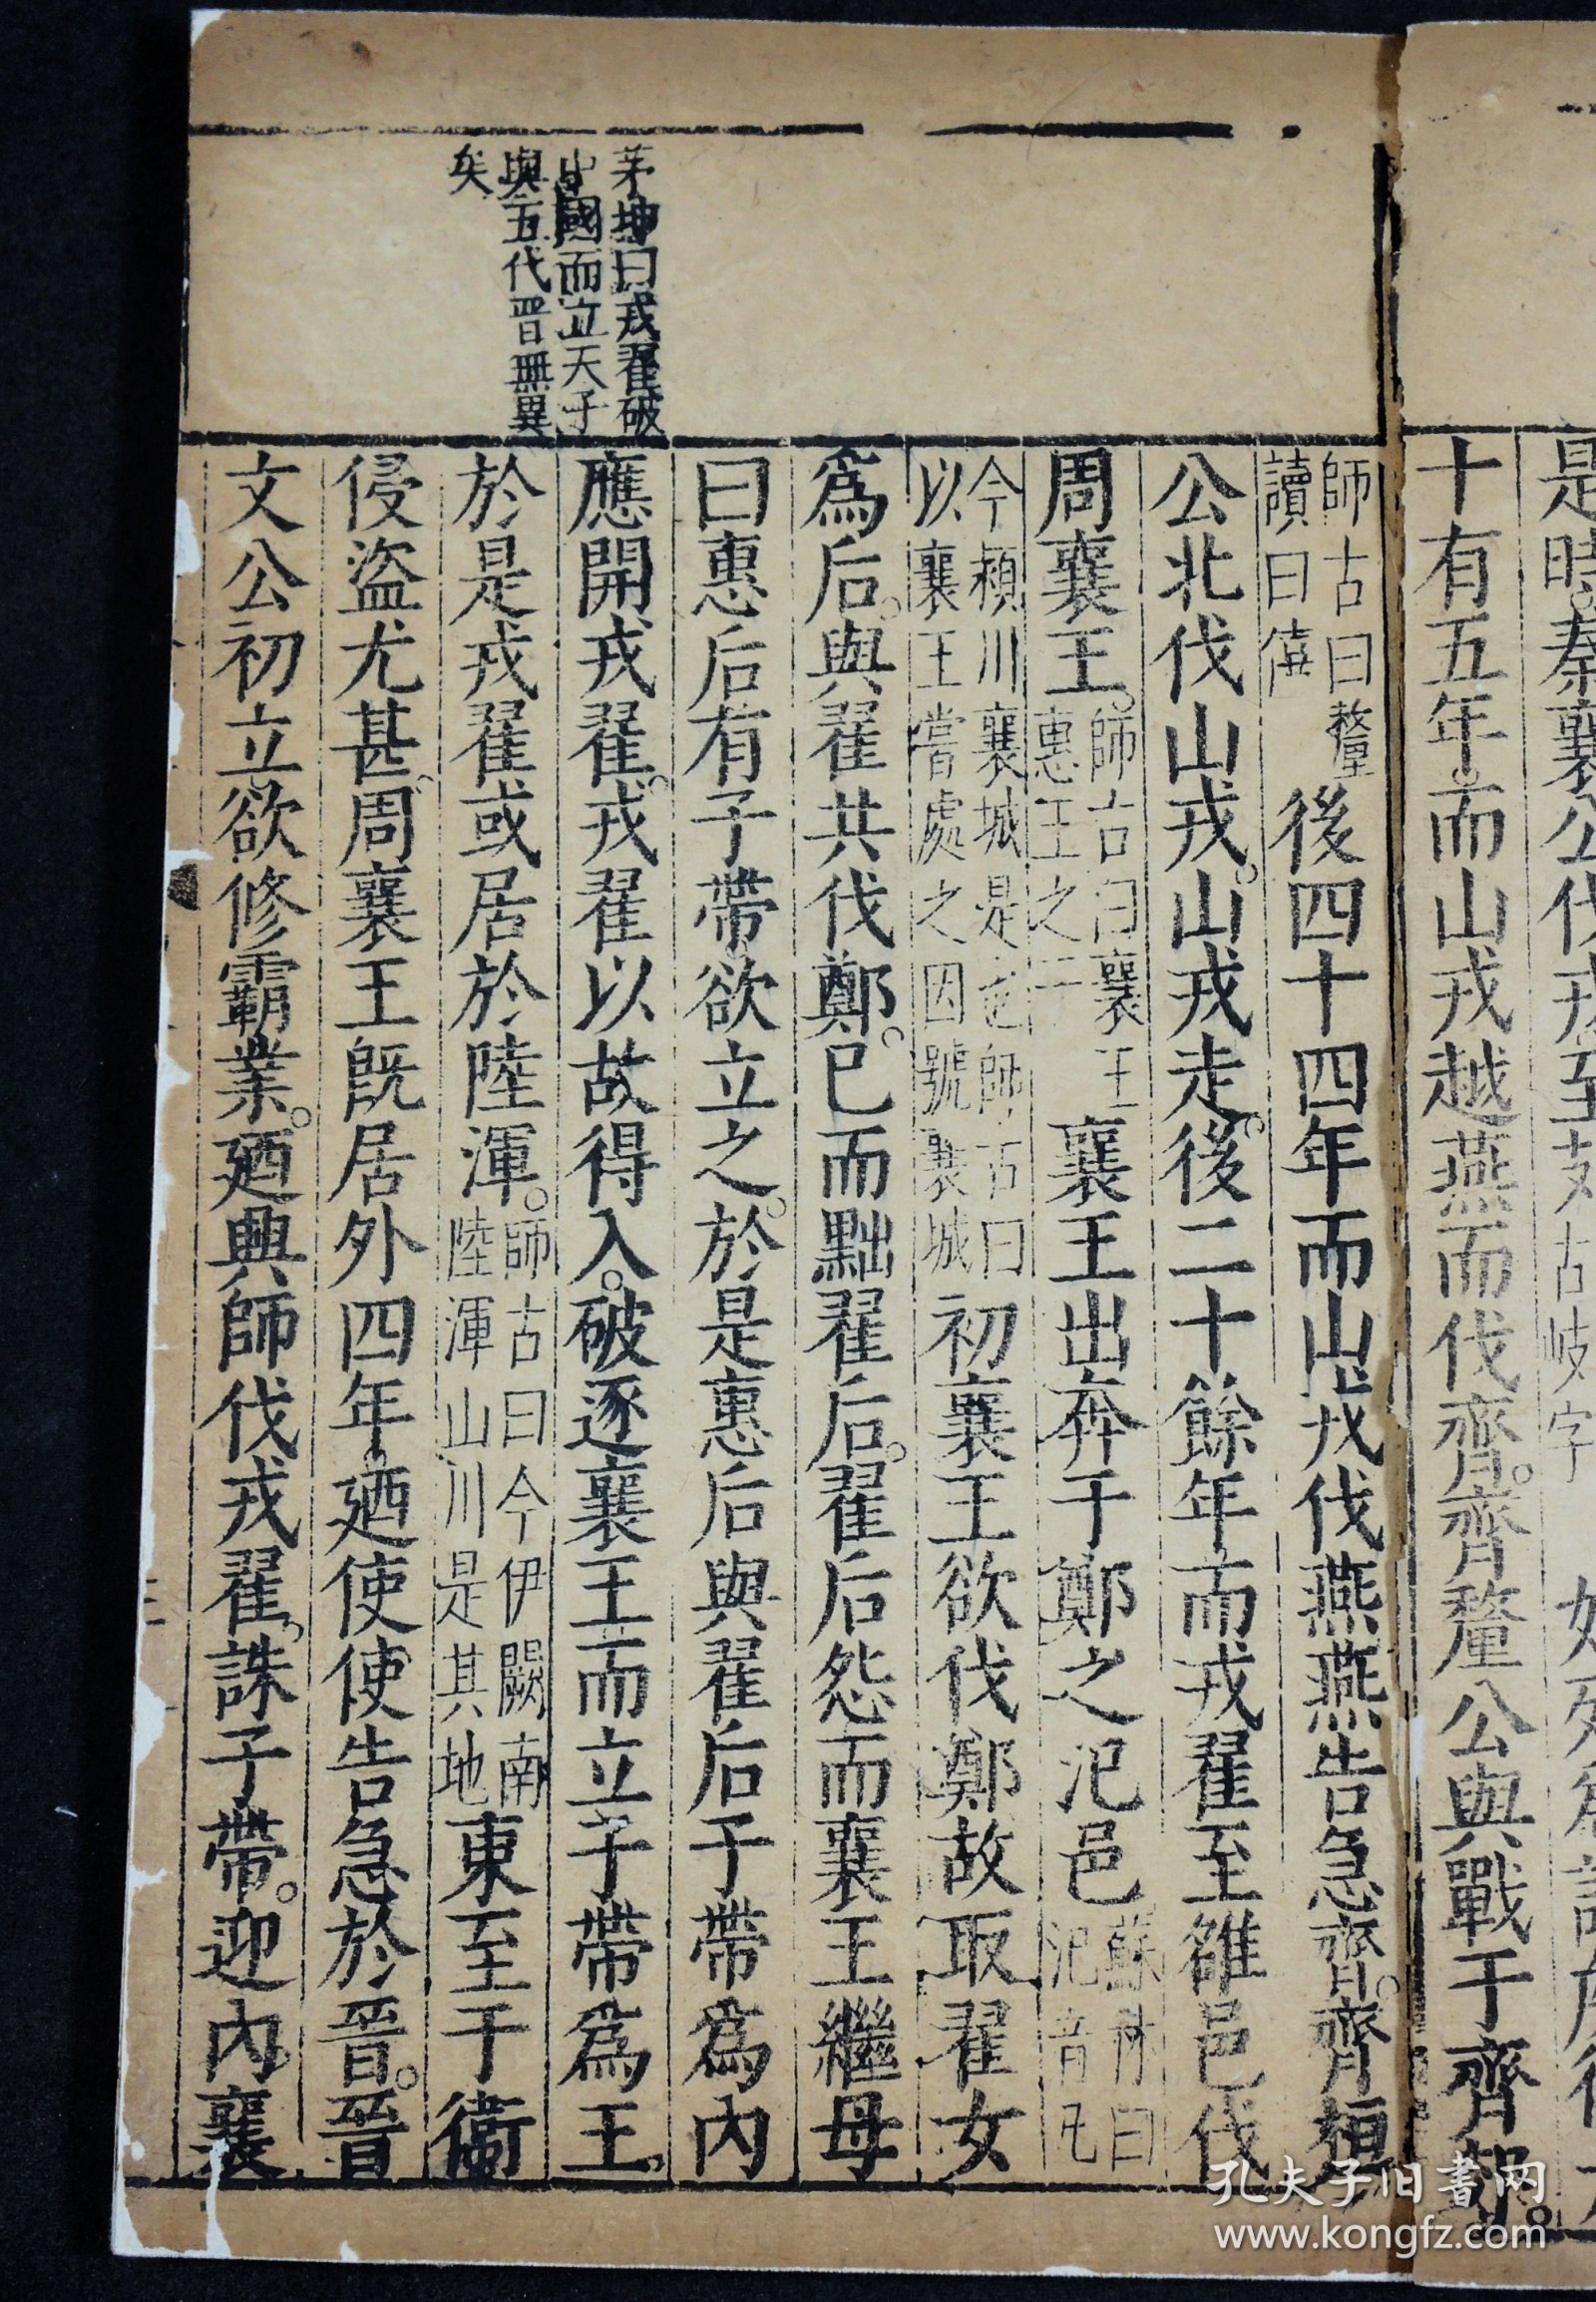 十有五年而山戎越燕而伐齊齊釐公與戰于齊郊
師古曰釐讀曰僖後四十四年而山戎伐燕燕告急齊齊桓
公北伐山戎山戎走後二十餘年而戎翟至雒邑伐
周襄王師古曰襄王惠王之子襄王出奔于鄭之氾邑蘇林曰氾音凡
今潁川襄城是也師古曰以襄王嘗處之因號襄城初襄王欲伐鄭故取翟女
爲后與翟共伐鄭已而黜翟后翟后怨而襄王繼母
曰惠后有子帶欲立之於是惠后與翟后子帶爲內
應開戎翟戎翟以故得入破逐襄王而立子帶爲王
於是戎翟或居於陸渾師古曰今伊闕南陸渾山川是其地東至于衞
侵盜尤甚周襄王既居外四年廼使使告急於晉晉
文公初立欲修霸業廼興師伐戎翟誅子帶迎內襄
茅坤曰戎翟破
中國而立天子
與五代晉無異
矣
孔夫子旧書网
www.kongfz.com